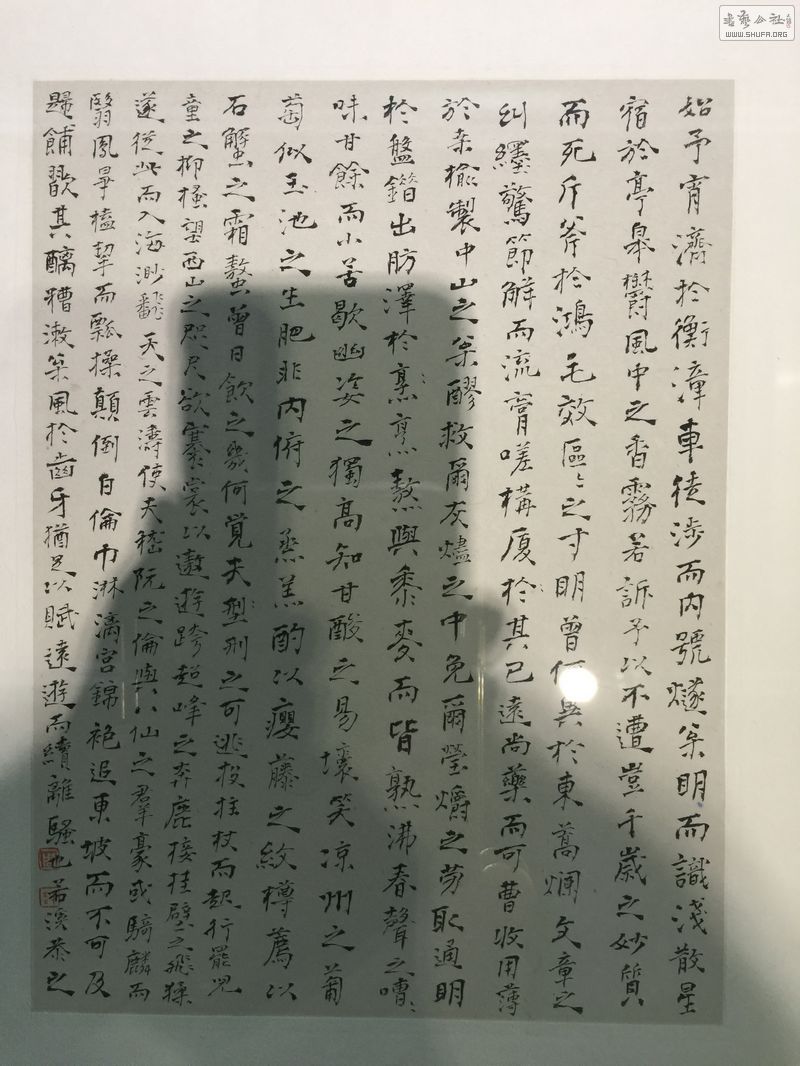 書藝公社
WWW.SHUFA.ORG
始予宵濟於衡漳車徒涉而内號燧枀明而識淺散星
宿於亭皋欝風中之香霧若訴予以不遭豈千歲之妙質
而死斤斧於鴻毛效區〻之寸明曾何異於東蒿斕文章之
糾纆驚節解而流膏嗟構厦於其已遠尚藥而可曹收用薄
於桒榆製中山之枀醪救爾灰燼之中免爾瑩爝之劳取通明
於盤錯出肪澤於烹熬與黍麥而皆熟沸春聲之嘈〻
味甘餘而小苦歇幽姿之獨高知甘酸之易壞笑凉州之葡
萄似玉池之生肥非内府之烝羔酌以癭藤之紋樽薦以
石蟹之霜螯曾日飲之幾何覚夫型刑之可逃投拄杖而起行罷児
童之抑搔望西山之咫尺欲褰裳以遨遊跨超峰之奔鹿接挂壁之飛猱
遂從此而入海渺飜天之雲濤使夫嵇阮之倫與八仙之羣豪或騎麟而
翳鳳爭榼挈而瓢操顛倒白倫巾淋漓宫錦袍追東坡而不可及
歸餔歠其醨糟漱枀風於齒牙猶足以賦遠遊而續離騷也 若溪恭之